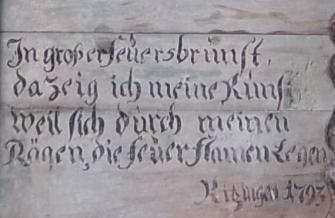 In großer feüersbrunst,
da zeig ich meine Kunst
weil sich dürch meinen
Rägen, die feüer flamen Legen
1793